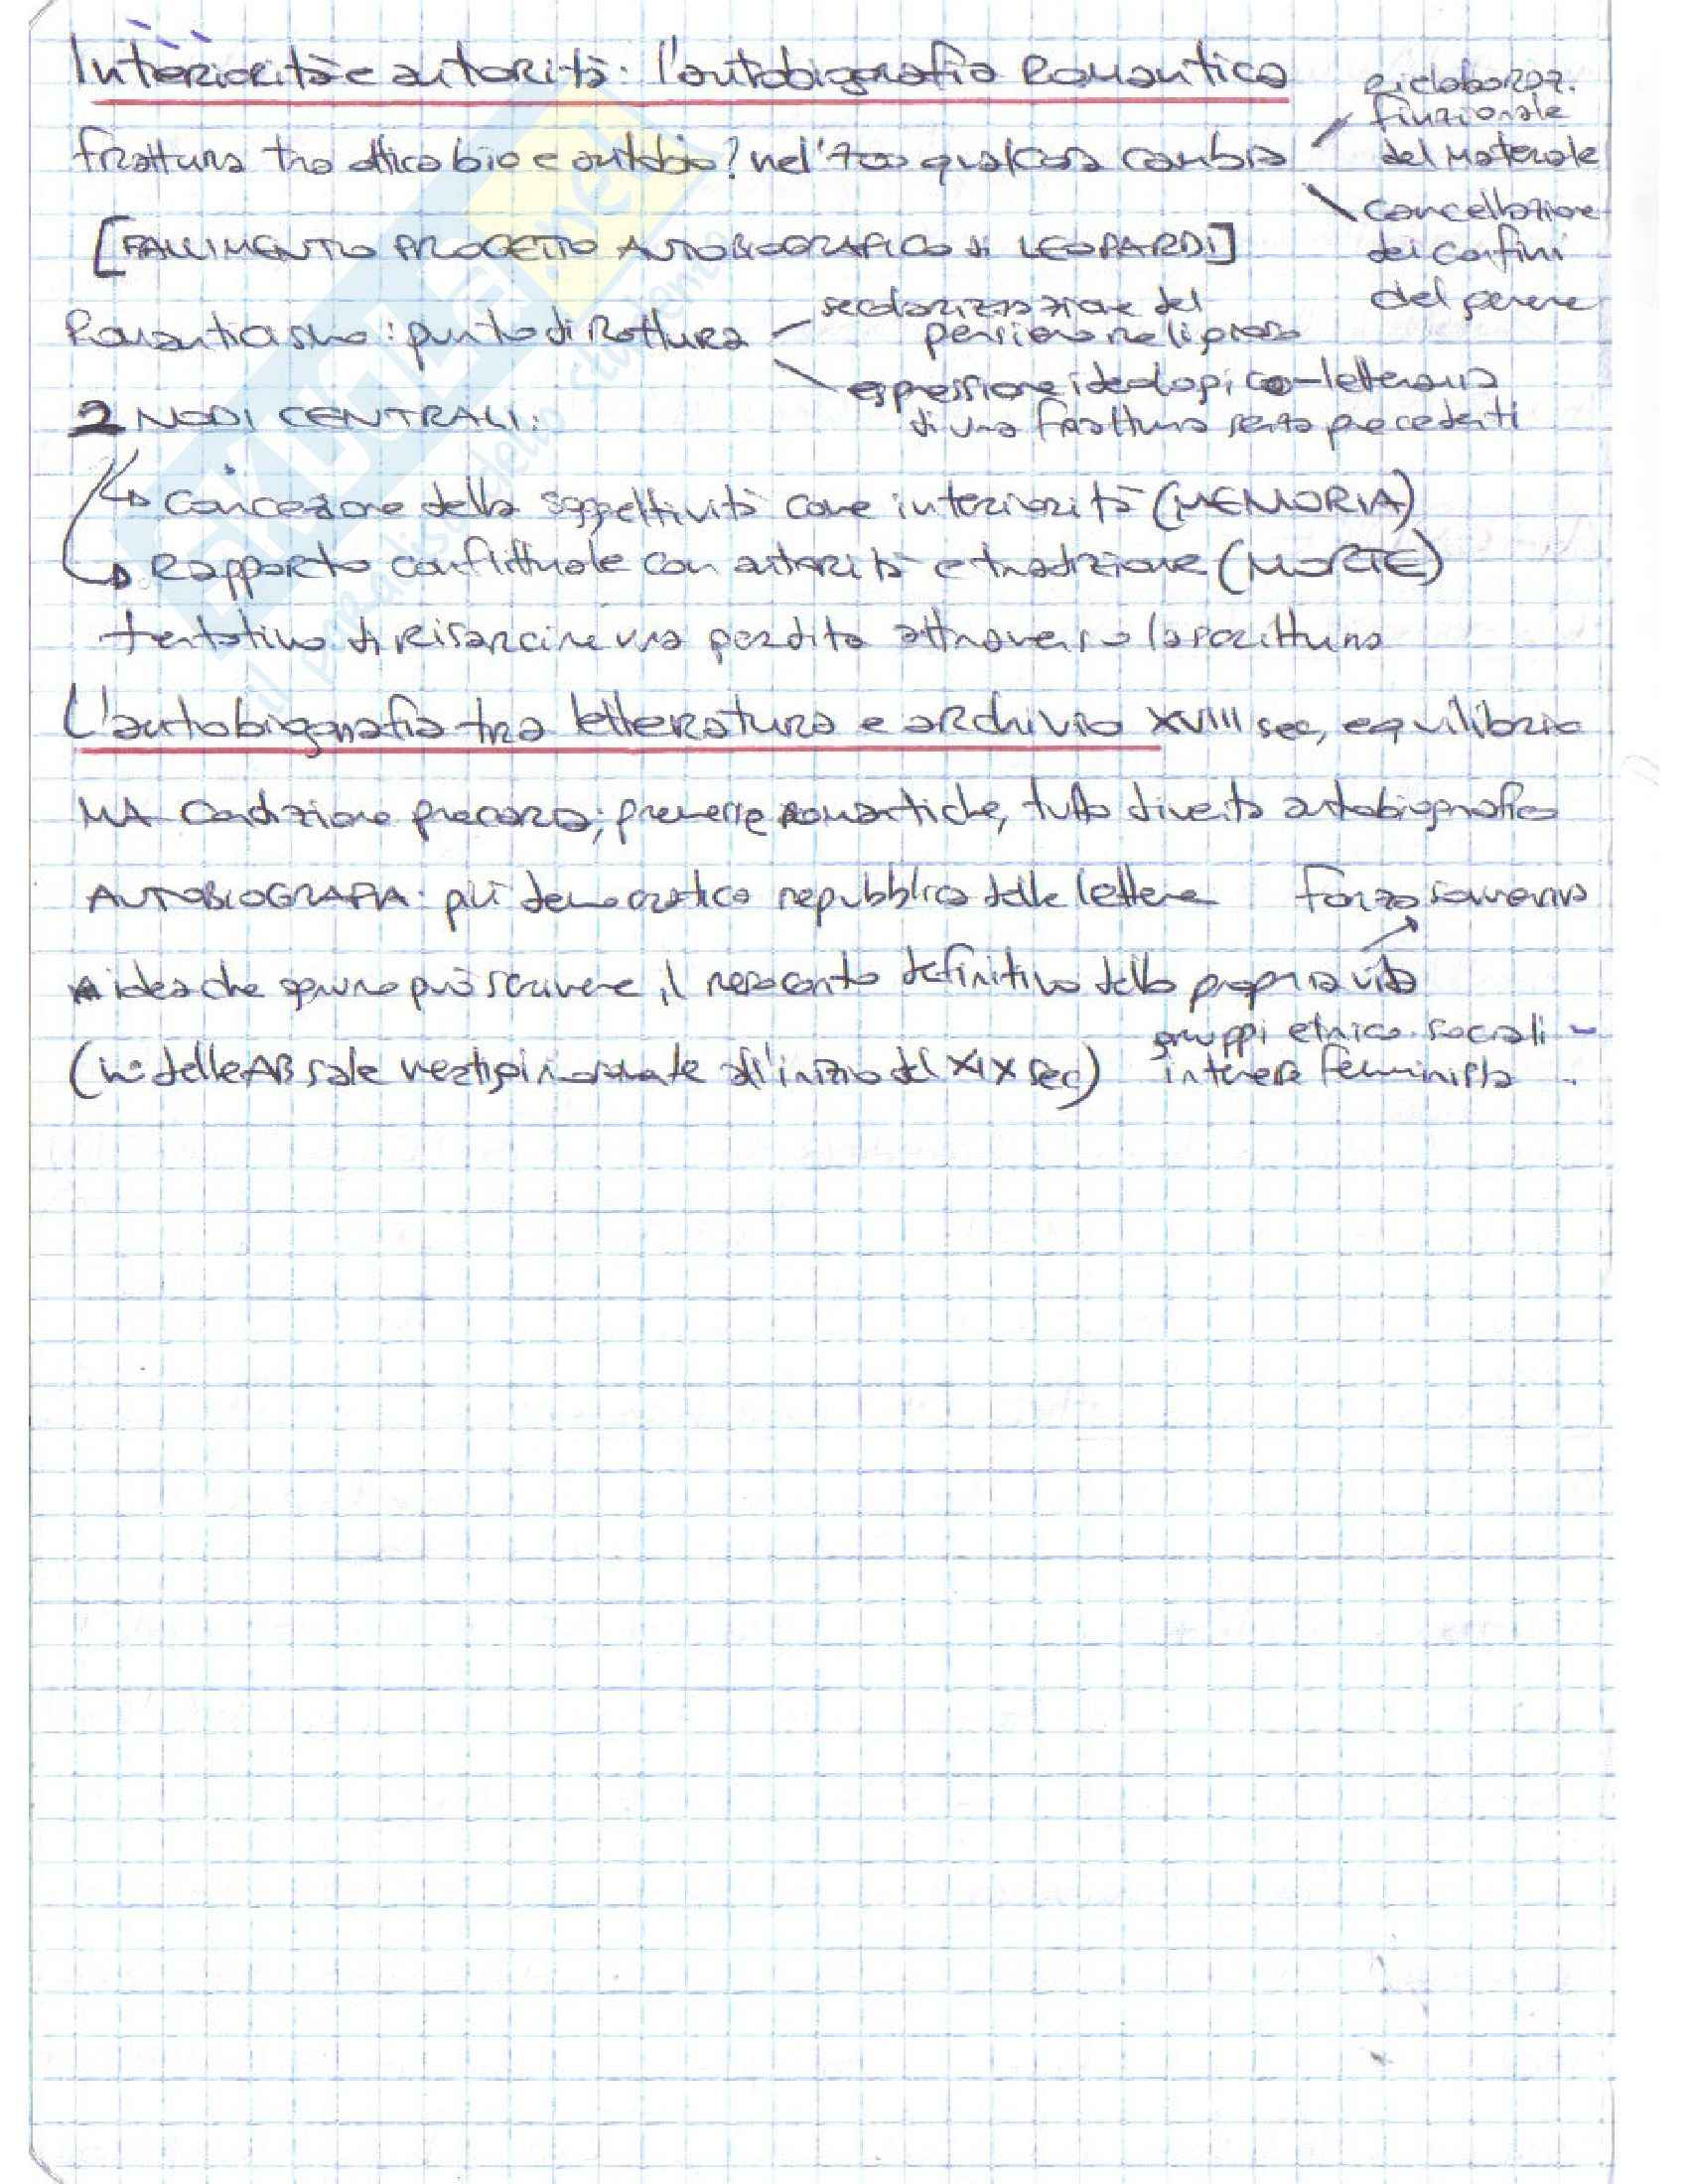 Interiorità e autorità: l'autobiografia Romantica
frattura tra ottica bio e autobio? nel '700 qualcosa cambia
rielaboraz.
finzionale
del materiale
cancellazione
dei confini
del genere
[FALLIMENTO PROGETTO AUTOBIOGRAFICO di LEOPARDI]
Romanticismo: punto di Rottura
secolarizzazione del
pensiero religioso
espressione ideologico-letteraria
di una frattura senza precedenti
2 NODI CENTRALI:
concezione della soggettività come interiorità (MEMORIA)
Rapporto conflittuale con autorità e tradizione (MORTE)
tentativo di risarcire una perdita attraverso la scrittura
L'autobiografia tra letteratura e archivio XVIII sec, equilibrio
MA condizione precaria; premesse romantiche, tutto diventa autobiografico
AUTOBIOGRAFIA: più democratica repubblica delle lettere
forza sovversiva
idea che ognuno può scrivere il resoconto definitivo della propria vita
gruppi etnico sociali -
interesse femminista
(n° delle AB sale vertiginosamente all'inizio del XIX sec)
SKUOLA.net
il paradiso dello studente